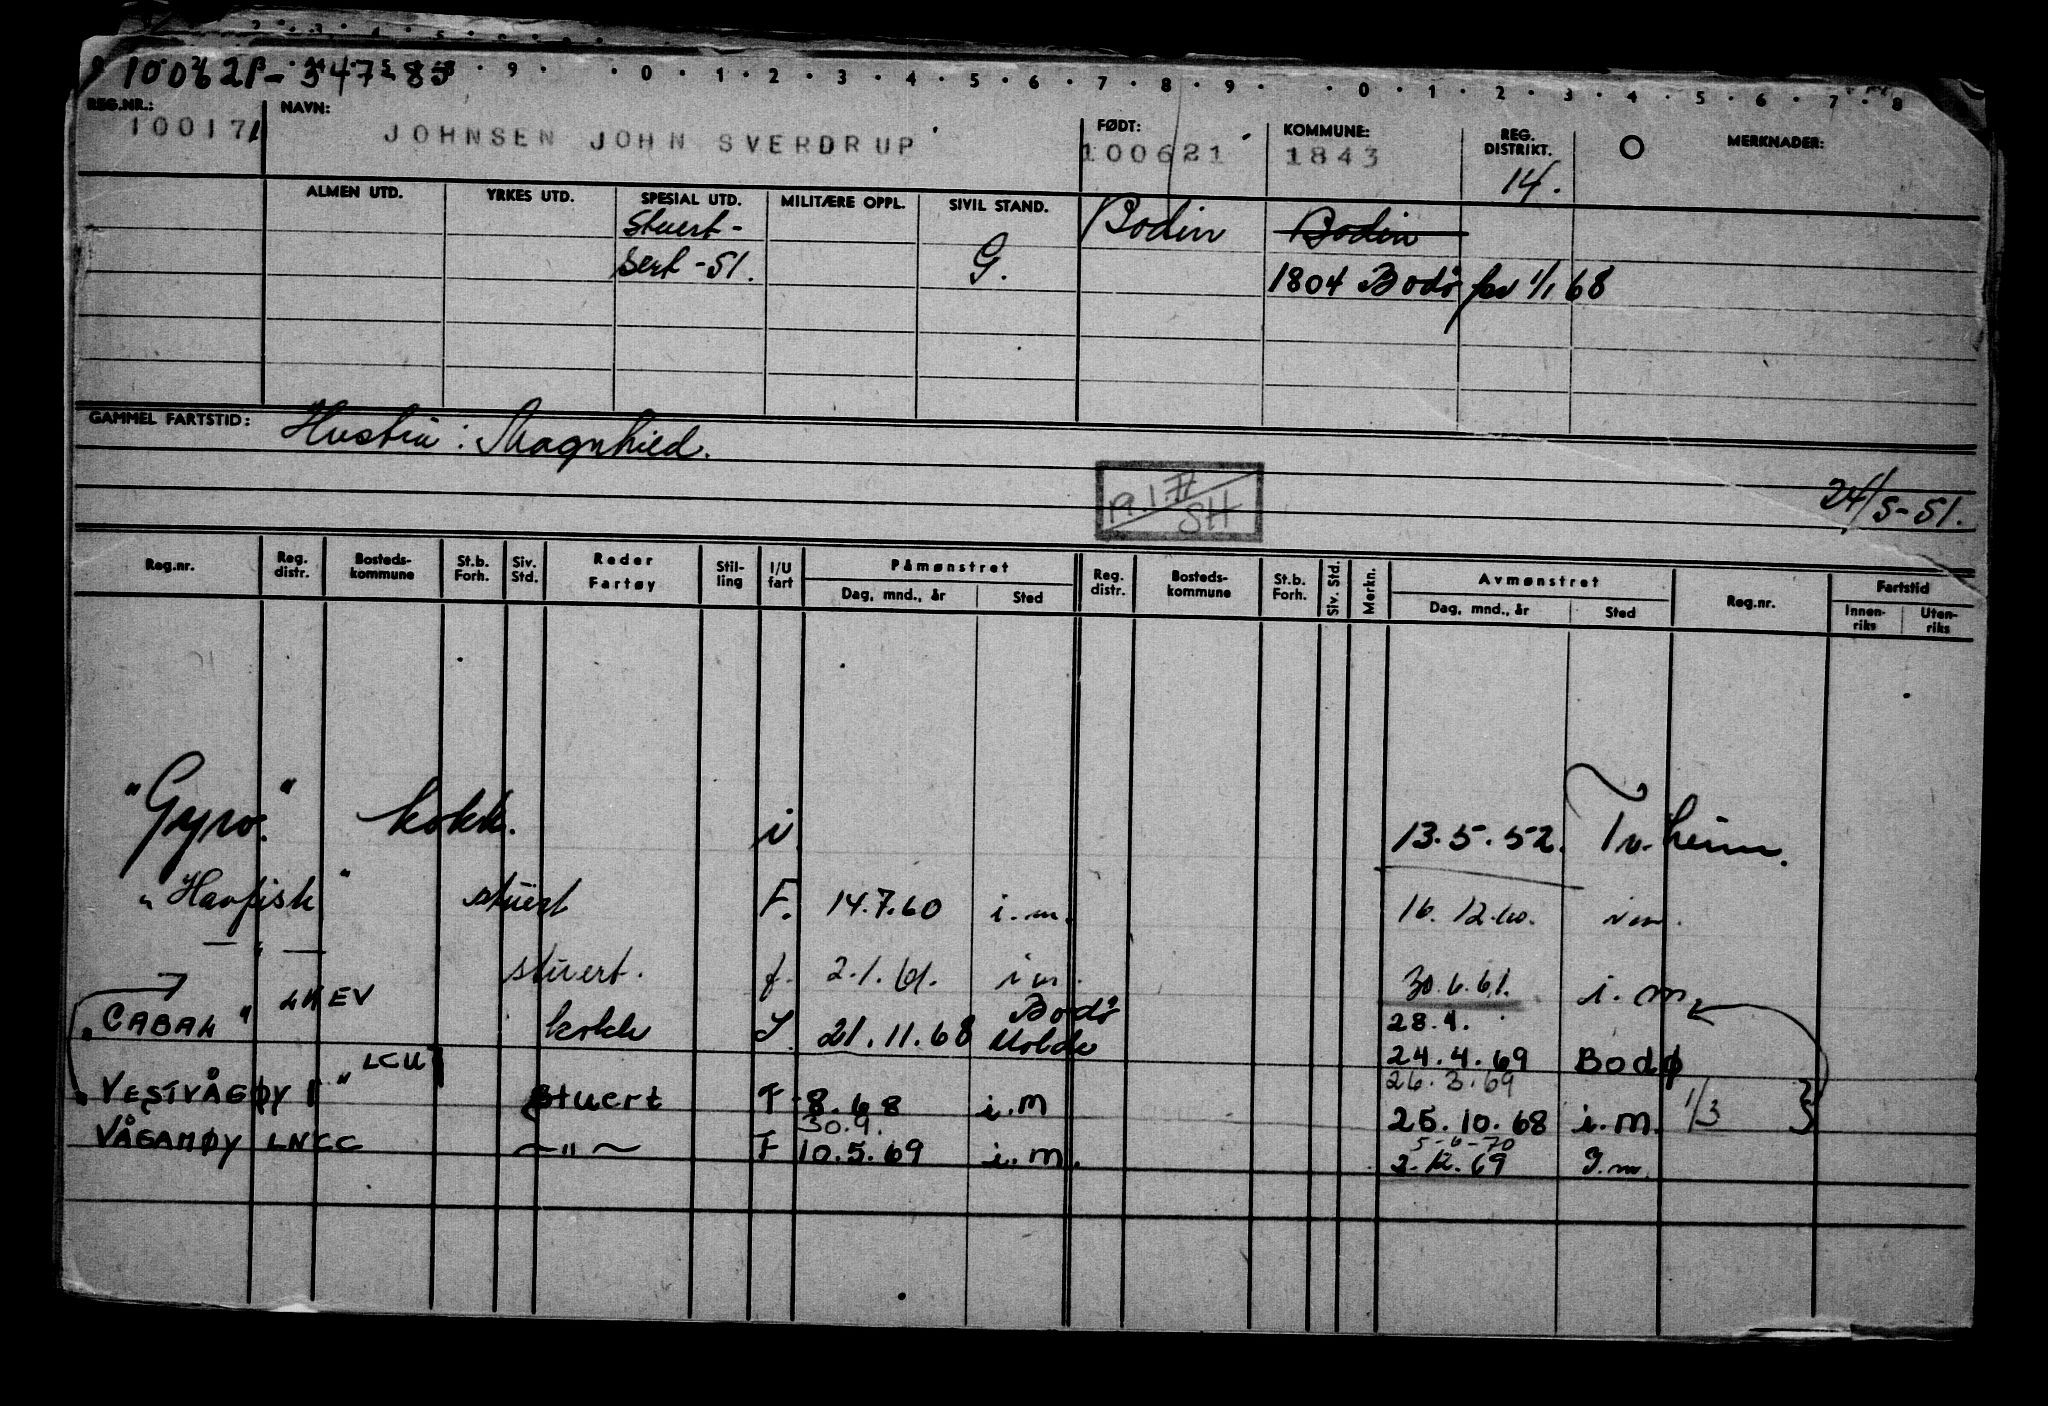 100621 - 34783
REG.NR.: NAVN: FØDT: KOMMUNE: REG. DISTRIKT. MERKNADER:
100171 JOHNSEN JOHN SVERDRUP 100621 1843 14.
ALMEN UTD. YRKES UTD. SPESIAL UTD. MILITÆRE OPPL. SIVIL STAND.
Stuert- Bodin Bodin
Sert -51. G. 1804 Bodø fra 1/1 68
GAMMEL FARTSTID: Hustru: Magnhild.
19.1.77
SH
24/5-51.
Reg.nr. Reg. distr. Bosteds-kommune St.b. Forh. Siv. Std. Reder Fartøy Stil-ling I/U fart Påmønstret Dag, mnd., år Sted Reg. distr. Bosteds-kommune St.b. Forh. Siv. Std. Merkn. Avmønstret Dag, mnd., år Sted Reg.nr. Fartstid Innen-riks Uten-riks
"Gyro." kokk. i 13.5.52. Tr.heim.
"Havfisk" stuert F. 14.7.60 i.m. 16.12.60. i m.
— " — stuert. f. 2.1.61. i m. 30.6.61. i.m.
"CABAL" LHEV kokk I. 21.11.68 Bodø Molde 28.4.
24.4.69 Bodø
26.3.69
"VESTVÅGØY" LCUI stuert F 8.68 i.m 25.10.68 i.m. 1/3
30.9. 5-6-70
VÅGAMØY LNCC —"— F 10.5.69 i.m. 2.12.69 I.m.